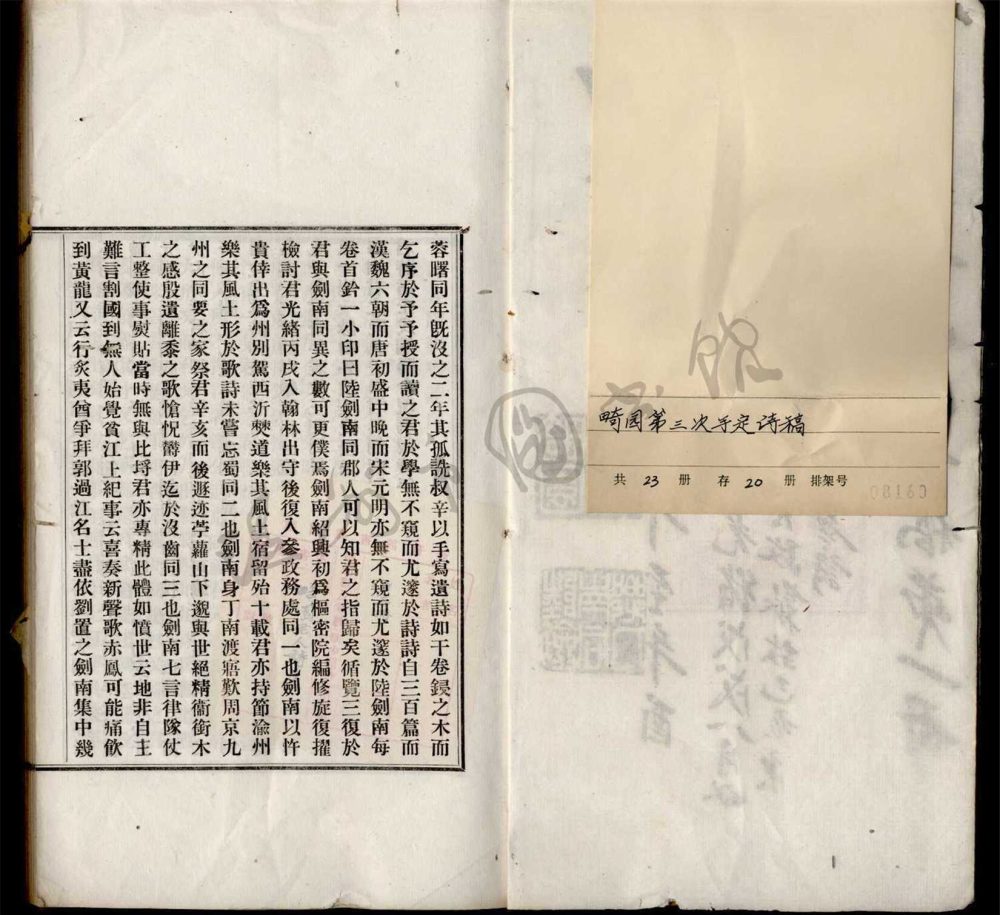 畸园第三次手定诗稿
共 23 册 存 20 册 排架号
08160
蓉曙同年旣沒之二年其孤詵叔辛以手寫遺詩如干卷鋟之木而
乞序於予予授而讀之君於學無不窺而尤邃於詩詩自三百篇而
漢魏六朝而唐初盛中晚而宋元明亦無不窺而尤邃於陸劍南每
卷首鈐一小印曰陸劍南同郡人可以知君之指歸矣循覽三復於
君與劍南同異之數可更僕焉劍南紹興初爲樞密院編修旋復擢
檢討君光緒丙戌入翰林出守後復入參政務處同一也劍南以忤
貴倖出爲州別駕西泝僰道樂其風土宿留殆十載君亦持節渝州
樂其風土形於歌詩未嘗忘蜀同二也劍南身丁南渡寤歎周京九
州之同要之家祭君辛亥而後遯迹苧蘿山下邈與世絕精衞銜木
之感殷遺離黍之歌愴怳欝伊迄於沒齒同三也劍南七言律隊仗
工整使事熨貼當時無與比埒君亦專精此體如憤世云地非自主
難言割國到無人始覺貧江上紀事云喜奏新聲歌赤鳳可能痛飮
到黃龍又云行炙夷酋爭拜郭過江名士盡依劉置之劍南集中幾